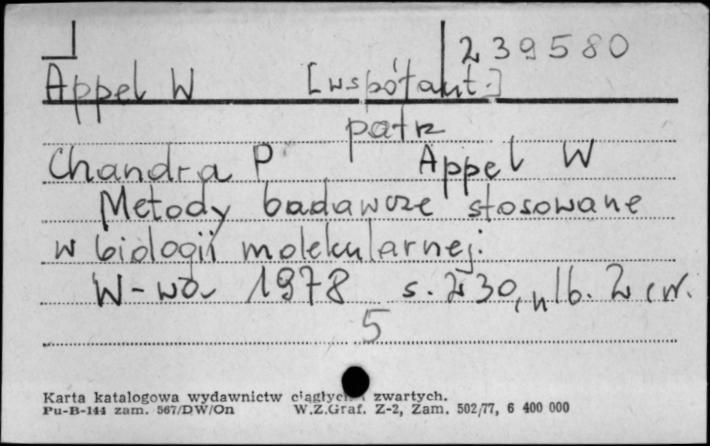 239580
Appel W [współaut.]
patrz
Chandra P Appel W
Metody badawcze stosowane
w biologii molekularnej.
W-wa 1978 s. 230, nlb. 2, rr.
5
Karta katalogowa wydawnictw ciągłych i zwartych.
Pu-B-144 zam. 567/DW/On W.Z.Graf. Z-2, Zam. 502/77, 6 400 000